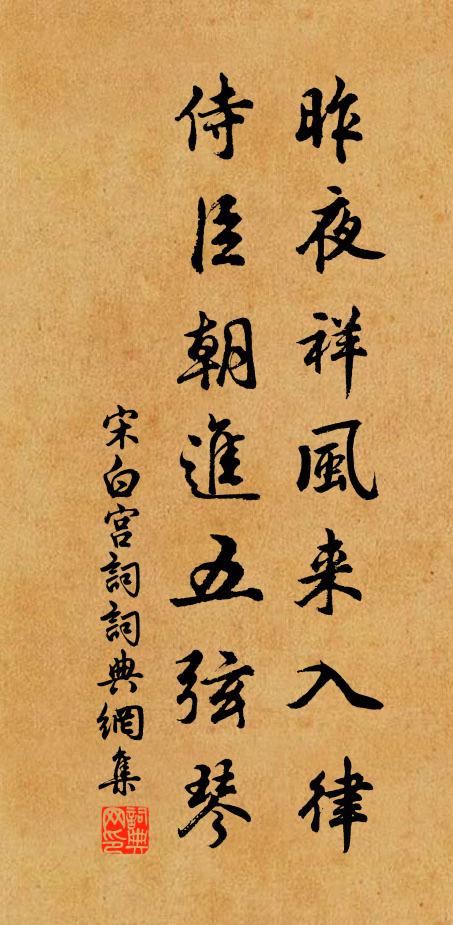 昨夜祥風来入律
侍臣朝進五弦琴
宋白宫詞詞典網集
詞典
网印